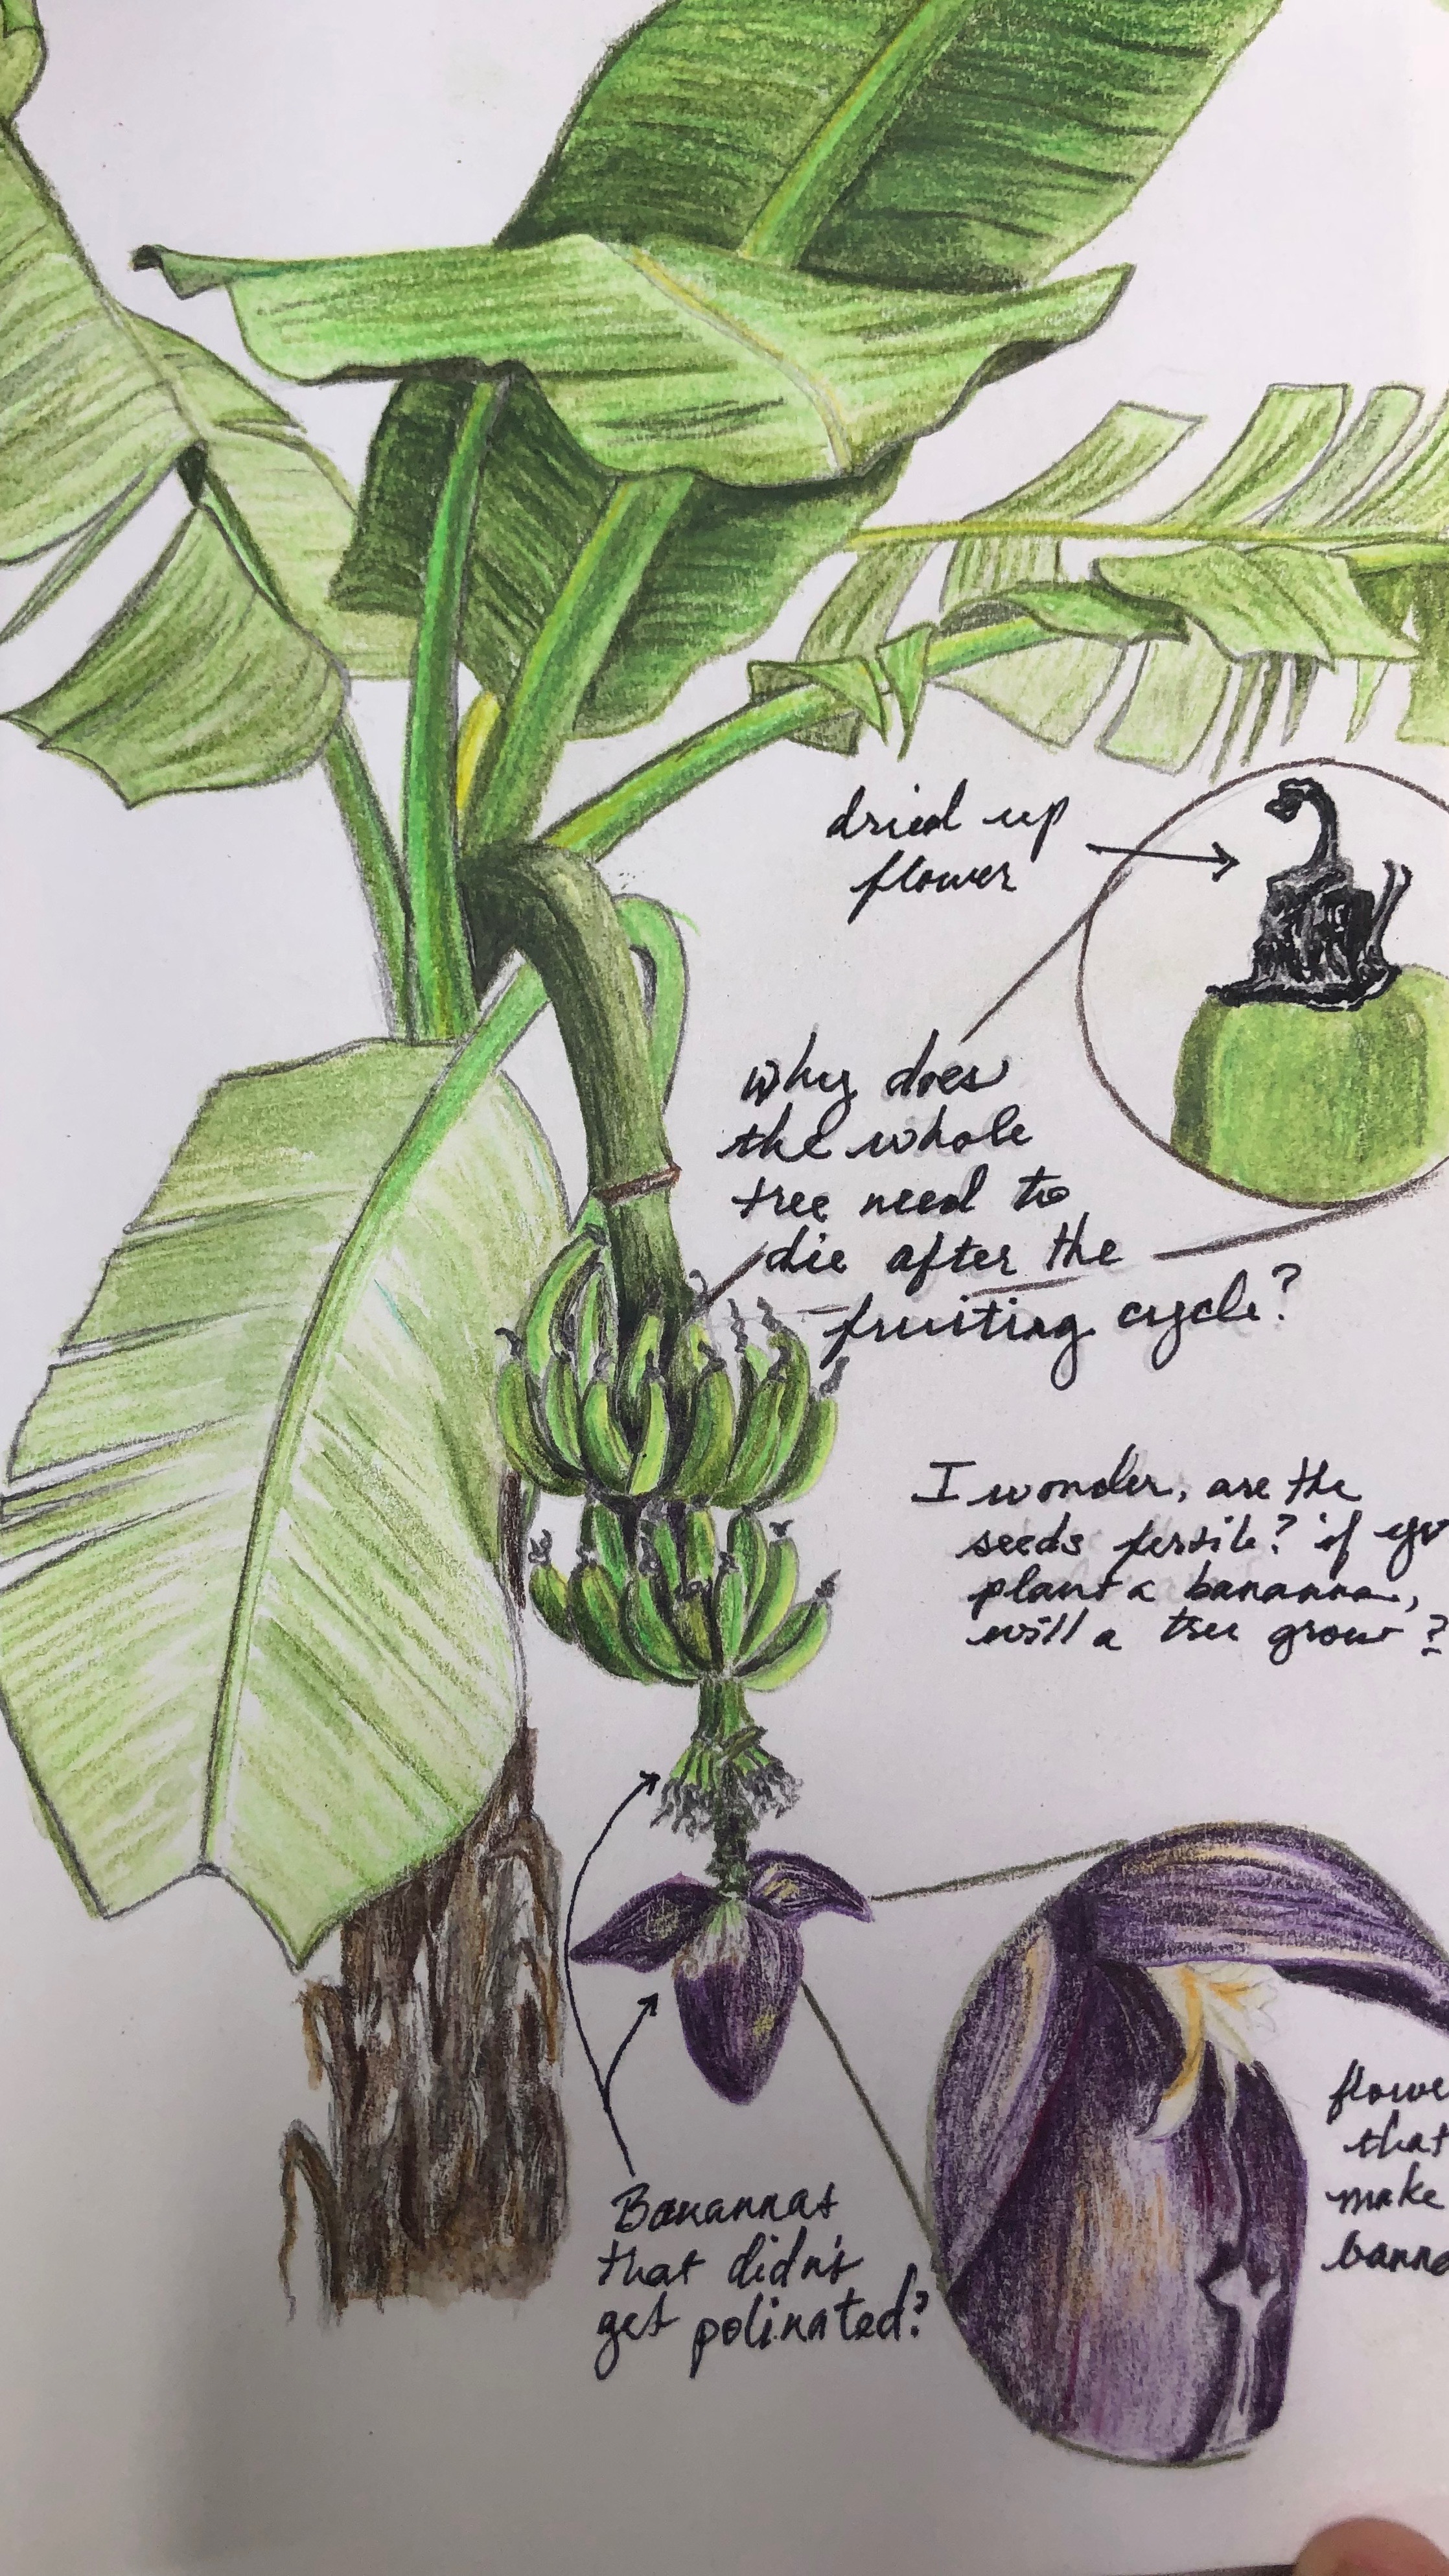 dried up
flower
why does
the whole
tree need to
die after the
fruiting cycle?
I wonder, are the
seeds fertile? if yo
plant a bananna,
will a tree grow?
flowe
that
make
banna
Banannas
that didn't
get polinated?